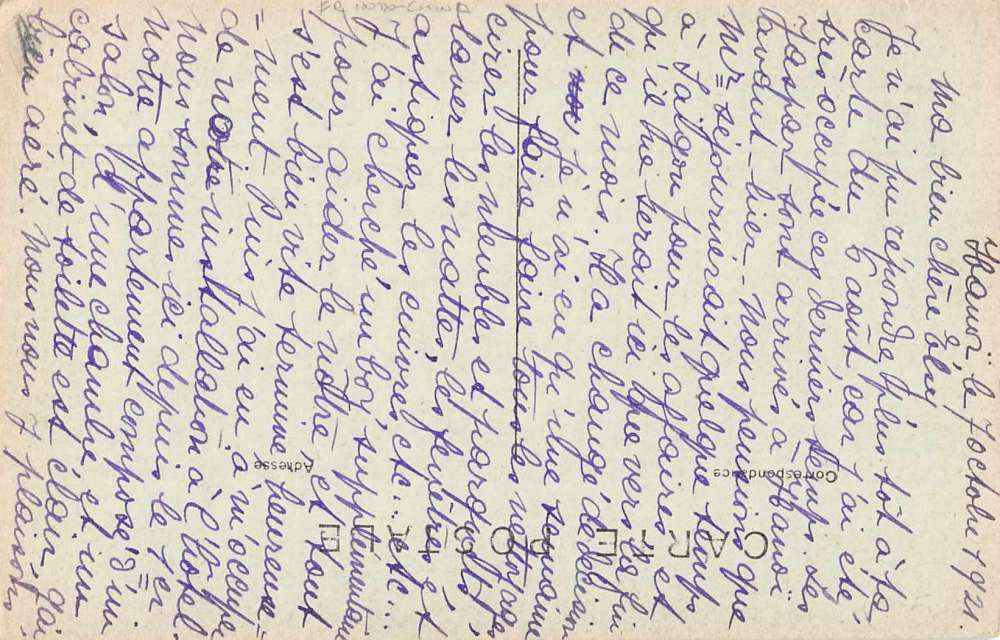 Hanoi le 7 octobre 1921.
Ma bien chère Olu
Je n'ai pu répondre plus tôt à ta
carte du 6 août car j'ai été
très occupée ces derniers temps. Les
Gaspart sont arrivés à Hanoi
avant-hier. Nous pensions que
Mr séjournerait quelque temps
à Saïgon pour les affaires et
qu'il ne serait ici que vers la fin
de ce mois. Il a changé d'décision
et je n'ai eu qu'une semaine
pour faire faire tous les nettoyages
cirer les meubles et parquets,
laver les nattes, les fenêtres et
astiquer les cuivres, etc.. etc..
J'ai cherché un boy supplémentaire
pour aider le nôtre et tout
s'est bien vite terminé heureuse=
=ment. Puis j'ai eu à m'occuper
de notre installation à l'hôtel
Nous sommes ici depuis le 1er
Notre appartement composé d'un
salon, d'une chambre et un
cabinet de toilette est clair, gai
bien aéré. Nous nous y plaisons
CARTE POSTALE
Correspondance
Adresse